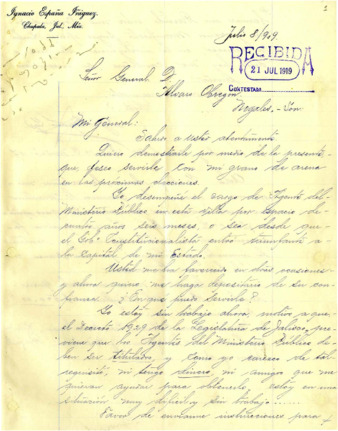 Ignacio España Iñiguez.
Chapala, Jal. Méx.
1
Julio 8/919
RECIBIDA
21 JUL 1919
CONTESTADA
Señor General D.
Alvaro Obregón
Nogales, - Son.
Mi General:
Saludo a usted atentamente.
Quiero demostrarle por medio de la presente
que, deseo servirle con mi grano de arena
en las próximas elecciones.
Yo desempeñé el cargo de Agente del
Ministerio Público en esta Villa por espacio de
cuatro años seis meses, o sea desde que
el Gob. Constitucionalista entró triunfante a
la Capital de mi Estado.
Usted me ha favorecido en otras ocasiones
y ahora quiero me haga depositario de su con-
fianza. ¿En qué puedo servirle?
Yo estoy sin trabajo ahora, motivo a que
el Decreto 1929 de la Legislatura de Jalisco, pre-
viene que los Agentes del Ministerio Público de-
ben ser titulados, y como yo carezco de tal
requisito, ni tengo dinero, ni amigos que me
quieran ayudar para obtenerlo, estoy en una
situación muy difícil y sin trabajo......
Favor de enviarme instrucciones para